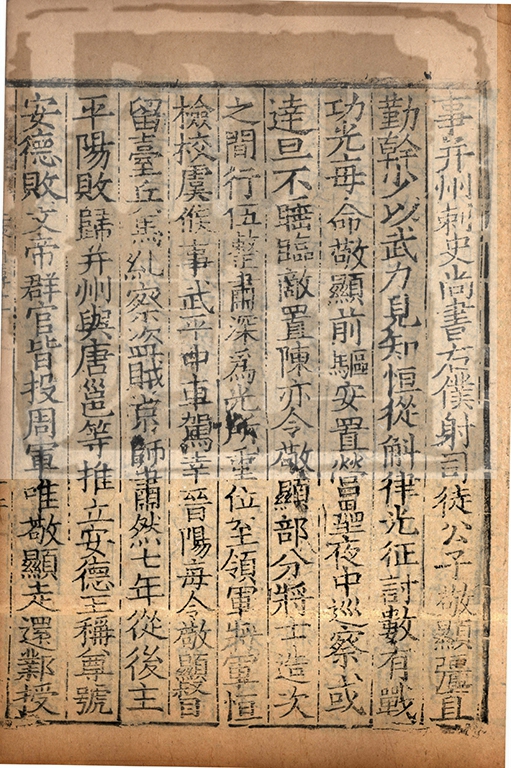 事并州刺史尚書右僕射司徒公子敬顯彊直
勤幹少以武力見知恒從斛律光征討數有戰
功光每命敬顯前驅安置營壘夜中巡察或
達旦不睡臨敵置陳亦令敬顯部分將士造次
之間行伍整肅深為光所重位至領軍將軍恒
檢校虞候事武平中車駕幸晉陽每令敬顯督
留臺兵馬糺察盜賊京師肅然七年從後主
平陽敗歸并州與唐邕等推立安德王稱尊號
安德敗文帝群官皆投周軍唯敬顯走還鄴授